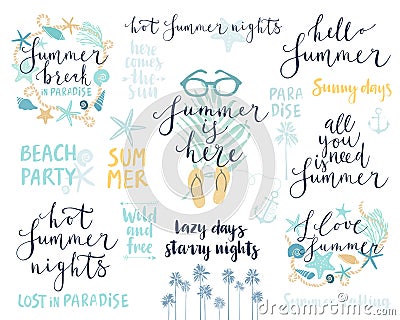 Summer
break
IN PARADISE
hot Summer nights
here
comes
the
SUN
hello
Summer
Sunny days
PARA
DISE
Summer
is
here
all
you
is need
Summer
BEACH
PARTY
SUM
MER
hot
Summer
nights
Wild
and
free
lazy days
starry nights
I love
Summer
LOST IN PARADISE
dreamstime